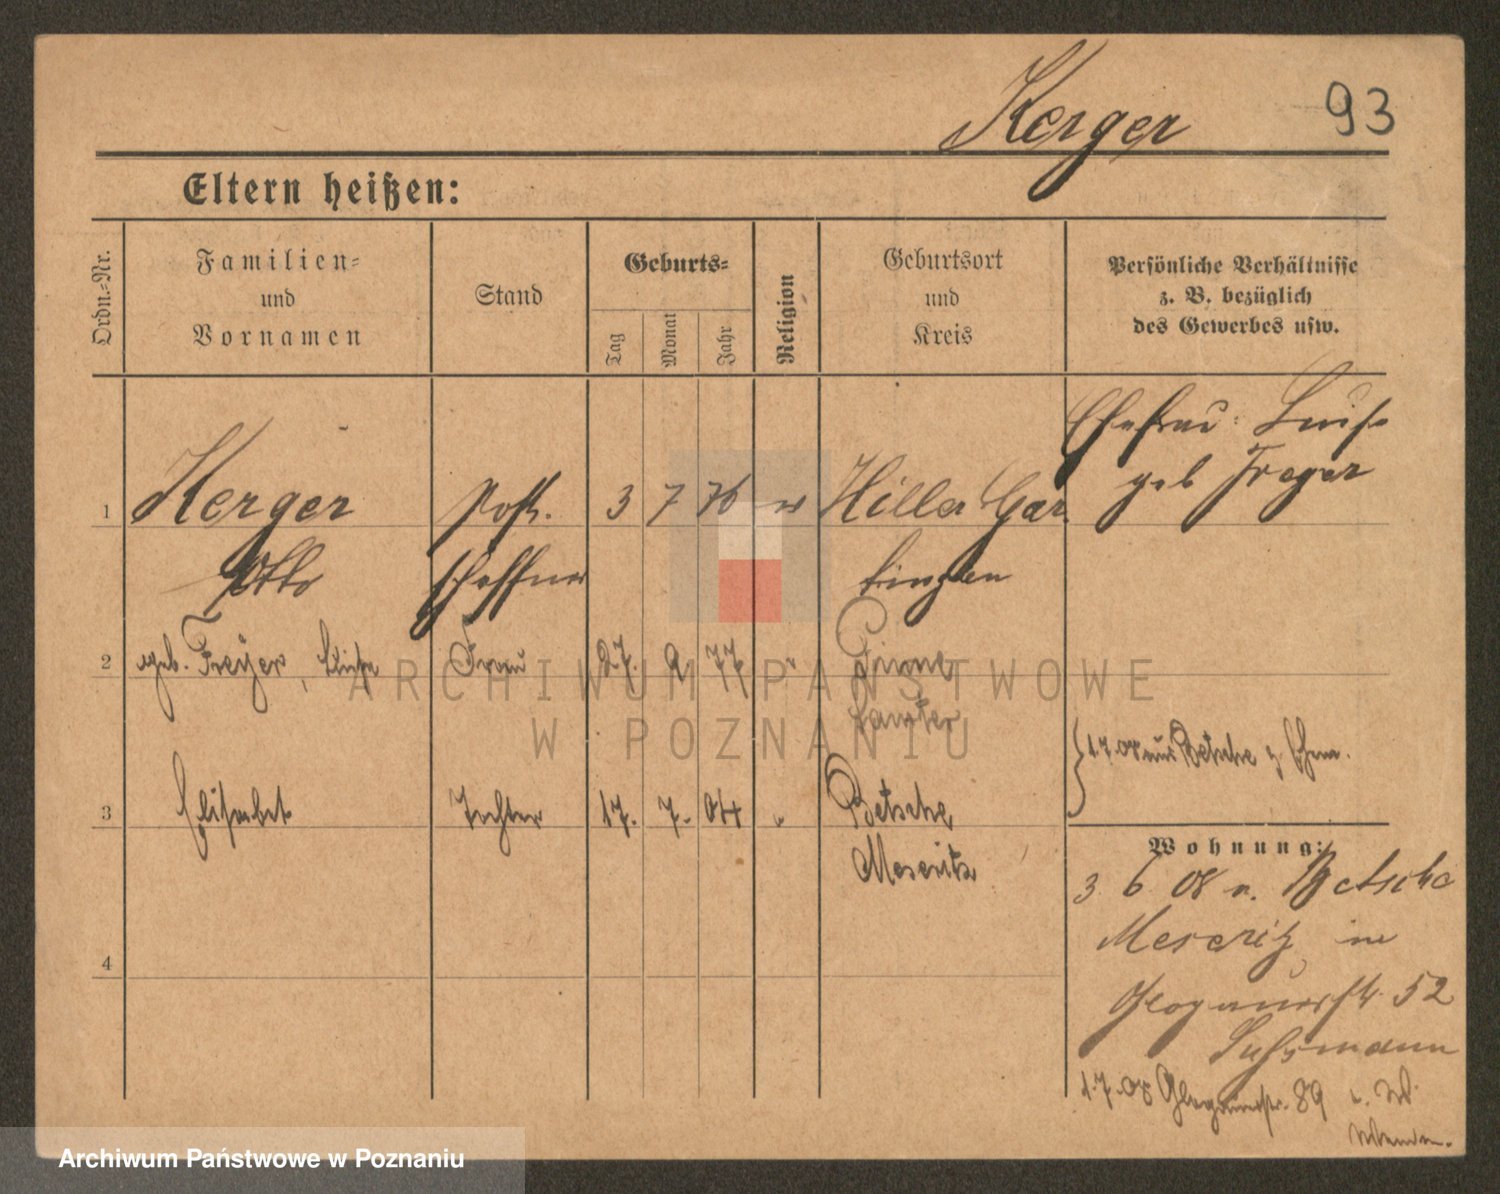 Kerger 93
Eltern heißen:
Ordn.-Nr.
Familien-
und
Vornamen
Stand
Geburts-
Tag
Monat
Jahr
Religion
Geburtsort
und
Kreis
Persönliche Verhältnisse
z. B. bezüglich
des Gewerbes usw.
Ehefrau: Luise
geb Freyer
1 Kerger Post. 3 7 76 Hilla Gar
Otto schaffner
2 geb. Freyer, Luise Frau 27. 2. 77 "
Samter
1.7.08 aus Betsche z. Ehem.
3 Elisabet Tochter 17. 7. 04 " Betsche
Meseritz
4
Wohnung:
3 6 08 v. Betsche
Meseritz in
Glogauerstr. 52
Sussmann
1.7.08 Glogauerstr. 89
ARCHIWUM PAŃSTWOWE
W POZNANIU
Archiwum Państwowe w Poznaniu